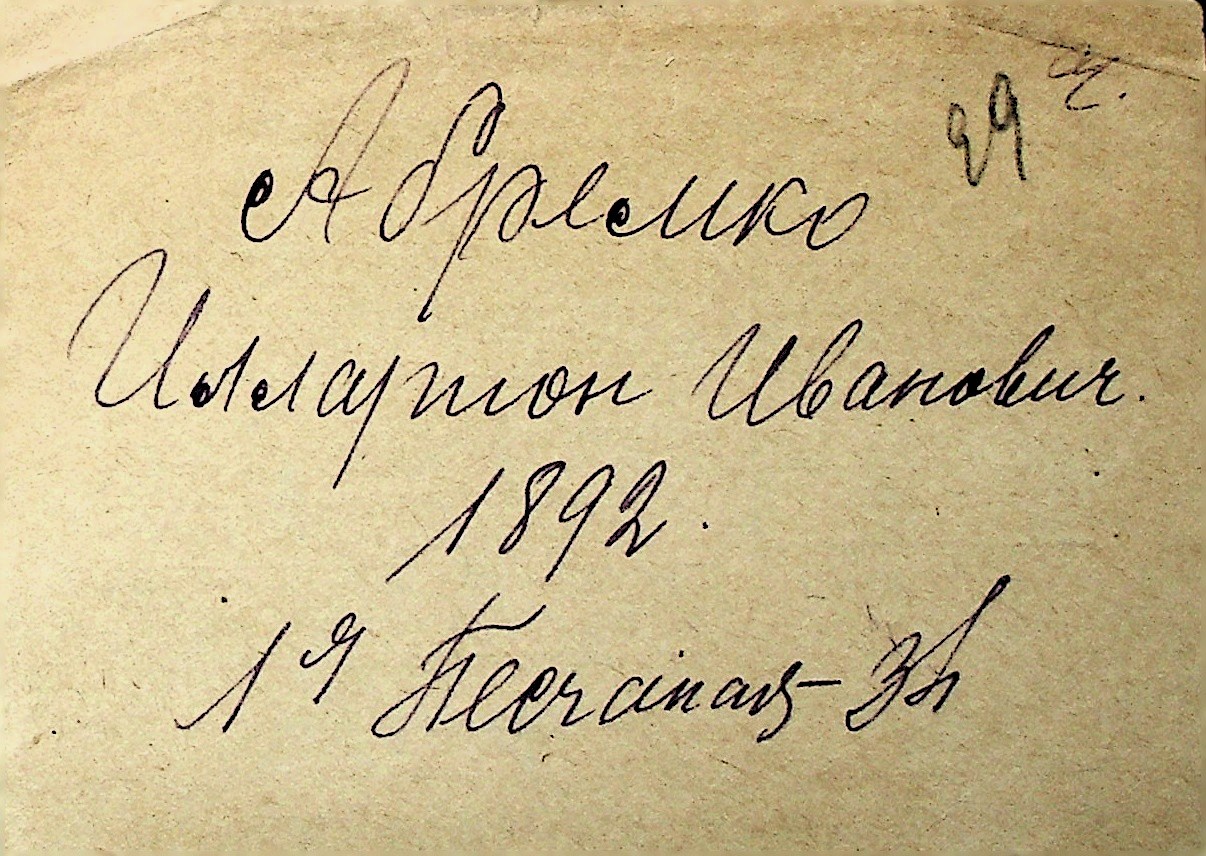 29
Абрямко
Илларион Иванович.
1892.
1я Песчаная - 3А